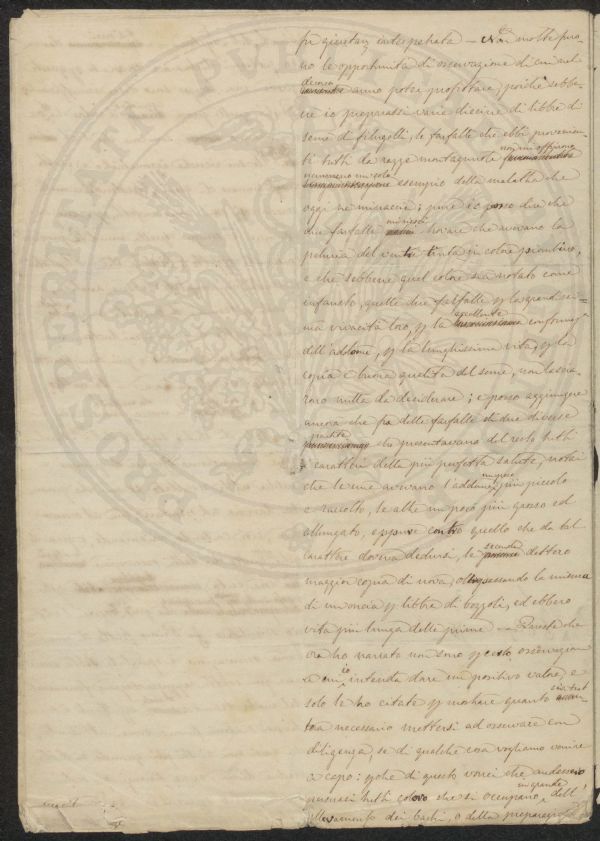 fù giustam interpretata — Non molte furo-
no le opportunità di osservazione di cui nel
decorso anno potei profittare, poichè sebbe-
ne io preparassi varie diecine di libbre di
seme di filugelli, le farfalle che ebbi provenien-
ti tutti da razze montagnole non mi offrirono
nemmeno un solo esempio della malattia che
oggi ne minaccia; pure io posso dire che
due farfalle mi riescì trovare che avevano la
peluria del ventre tinta in colore piombino,
e che sebbene quel colore sia notato come
infausto, quelle due farfalle p la grandissi-
ma vivacità loro, p la eccellente conformaz
dell'addome, p la lunghissima vita, p la
copia e buona qualità del seme, non lascia-
rono nulla da desiderare; e posso aggiungere
ancora che fra delle farfalle di due diverse
partite che presentavano del resto tutti
i caratteri della più perfetta salute, notai
che le une avevano l'addome un poco più piccolo
e raccolto, le altre un poco più grosso ed
allungato, eppure contro quello che da tal
carattere doveva dedursi, le seconde dettero
maggior copia di uova, oltrepassando la misura
di un oncia p libbra di bozzoli, ed ebbero
vita più lunga delle prime — Queste che
ora ho narrato non sono p certo osservazioni
a cui io intenda dare un positivo valore, e
solo le ho citate p mostrare quanto sia tut
tora necessario mettersi ad osservare con
diligenza, se di qualche cosa vogliamo venire
a capo: p che di questo vorrei che andassero
persuasi tutti coloro che si occupano in grande dell
allevamento dei bachi, o della preparaz